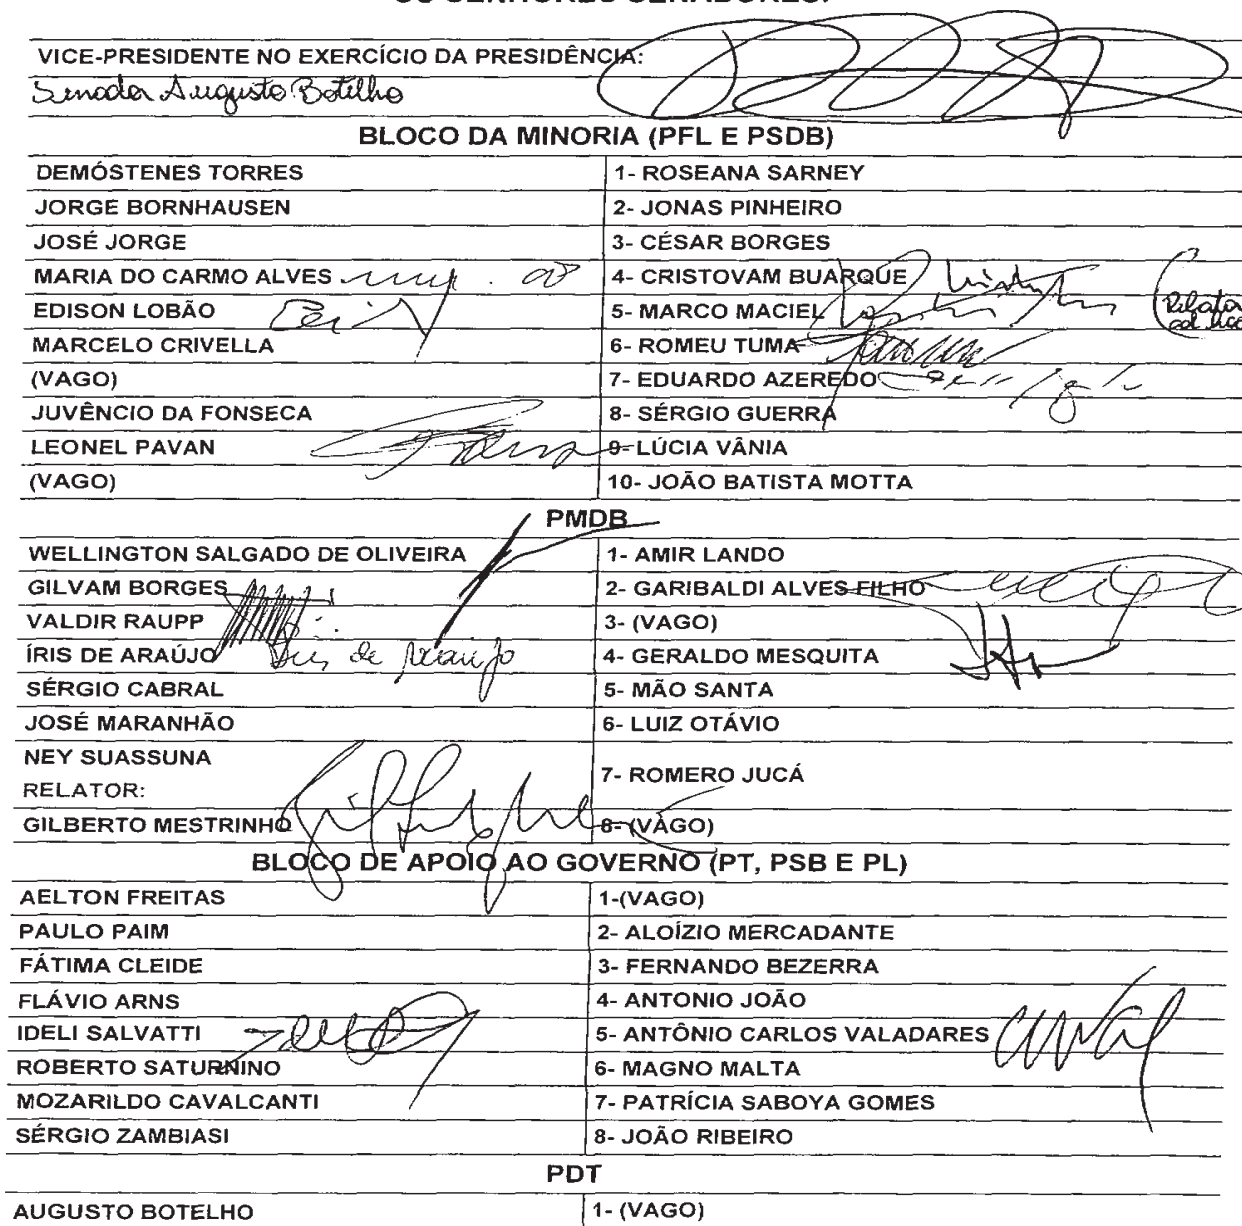 OS SENHORES SENADORES:
VICE-PRESIDENTE NO EXERCÍCIO DA PRESIDÊNCIA:
Senador Augusto Botelho
BLOCO DA MINORIA (PFL E PSDB)
DEMÓSTENES TORRES 1- ROSEANA SARNEY
JORGE BORNHAUSEN 2- JONAS PINHEIRO
JOSÉ JORGE 3- CÉSAR BORGES
MARIA DO CARMO ALVES 4- CRISTOVAM BUARQUE
EDISON LOBÃO 5- MARCO MACIEL Relator ad hoc
MARCELO CRIVELLA 6- ROMEU TUMA
(VAGO) 7- EDUARDO AZEREDO
JUVÊNCIO DA FONSECA 8- SÉRGIO GUERRA
LEONEL PAVAN 9- LÚCIA VÂNIA
(VAGO) 10- JOÃO BATISTA MOTTA
PMDB
WELLINGTON SALGADO DE OLIVEIRA 1- AMIR LANDO
GILVAM BORGES 2- GARIBALDI ALVES FILHO
VALDIR RAUPP 3- (VAGO)
ÍRIS DE ARAÚJO Íris de Araújo 4- GERALDO MESQUITA
SÉRGIO CABRAL 5- MÃO SANTA
JOSÉ MARANHÃO 6- LUIZ OTÁVIO
NEY SUASSUNA 7- ROMERO JUCÁ
RELATOR:
GILBERTO MESTRINHO 8- (VAGO)
BLOCO DE APOIO AO GOVERNO (PT, PSB E PL)
AELTON FREITAS 1-(VAGO)
PAULO PAIM 2- ALOÍZIO MERCADANTE
FÁTIMA CLEIDE 3- FERNANDO BEZERRA
FLÁVIO ARNS 4- ANTONIO JOÃO
IDELI SALVATTI 5- ANTÔNIO CARLOS VALADARES
ROBERTO SATURNINO 6- MAGNO MALTA
MOZARILDO CAVALCANTI 7- PATRÍCIA SABOYA GOMES
SÉRGIO ZAMBIASI 8- JOÃO RIBEIRO
PDT
AUGUSTO BOTELHO 1- (VAGO)